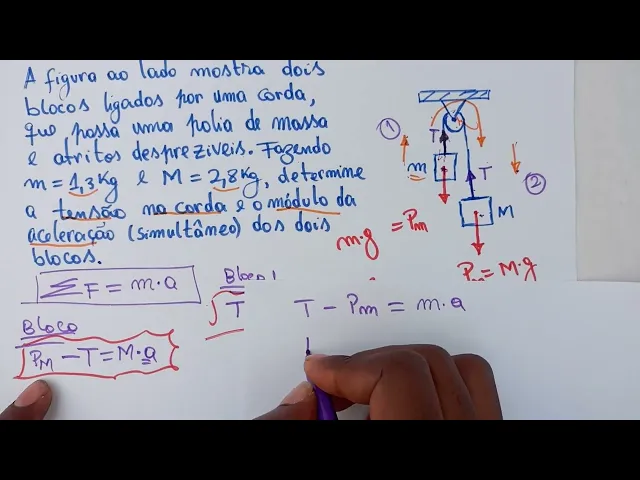 A figura ao lado mostra dois
blocos ligados por uma corda,
que possa uma polia de massa
e atritos despreziveis. Fazendo
m = 1,3 Kg e M = 2,8 Kg, determine
a tensão na corda e o módulo da
aceleração (simultâneo) dos dois
blocos.
1
T
m
T
2
M
m.g = Pm
P = M.g
ΣF = m.a
Bloco 1
T
T - Pm = m.a
Bloco
PM - T = M.a